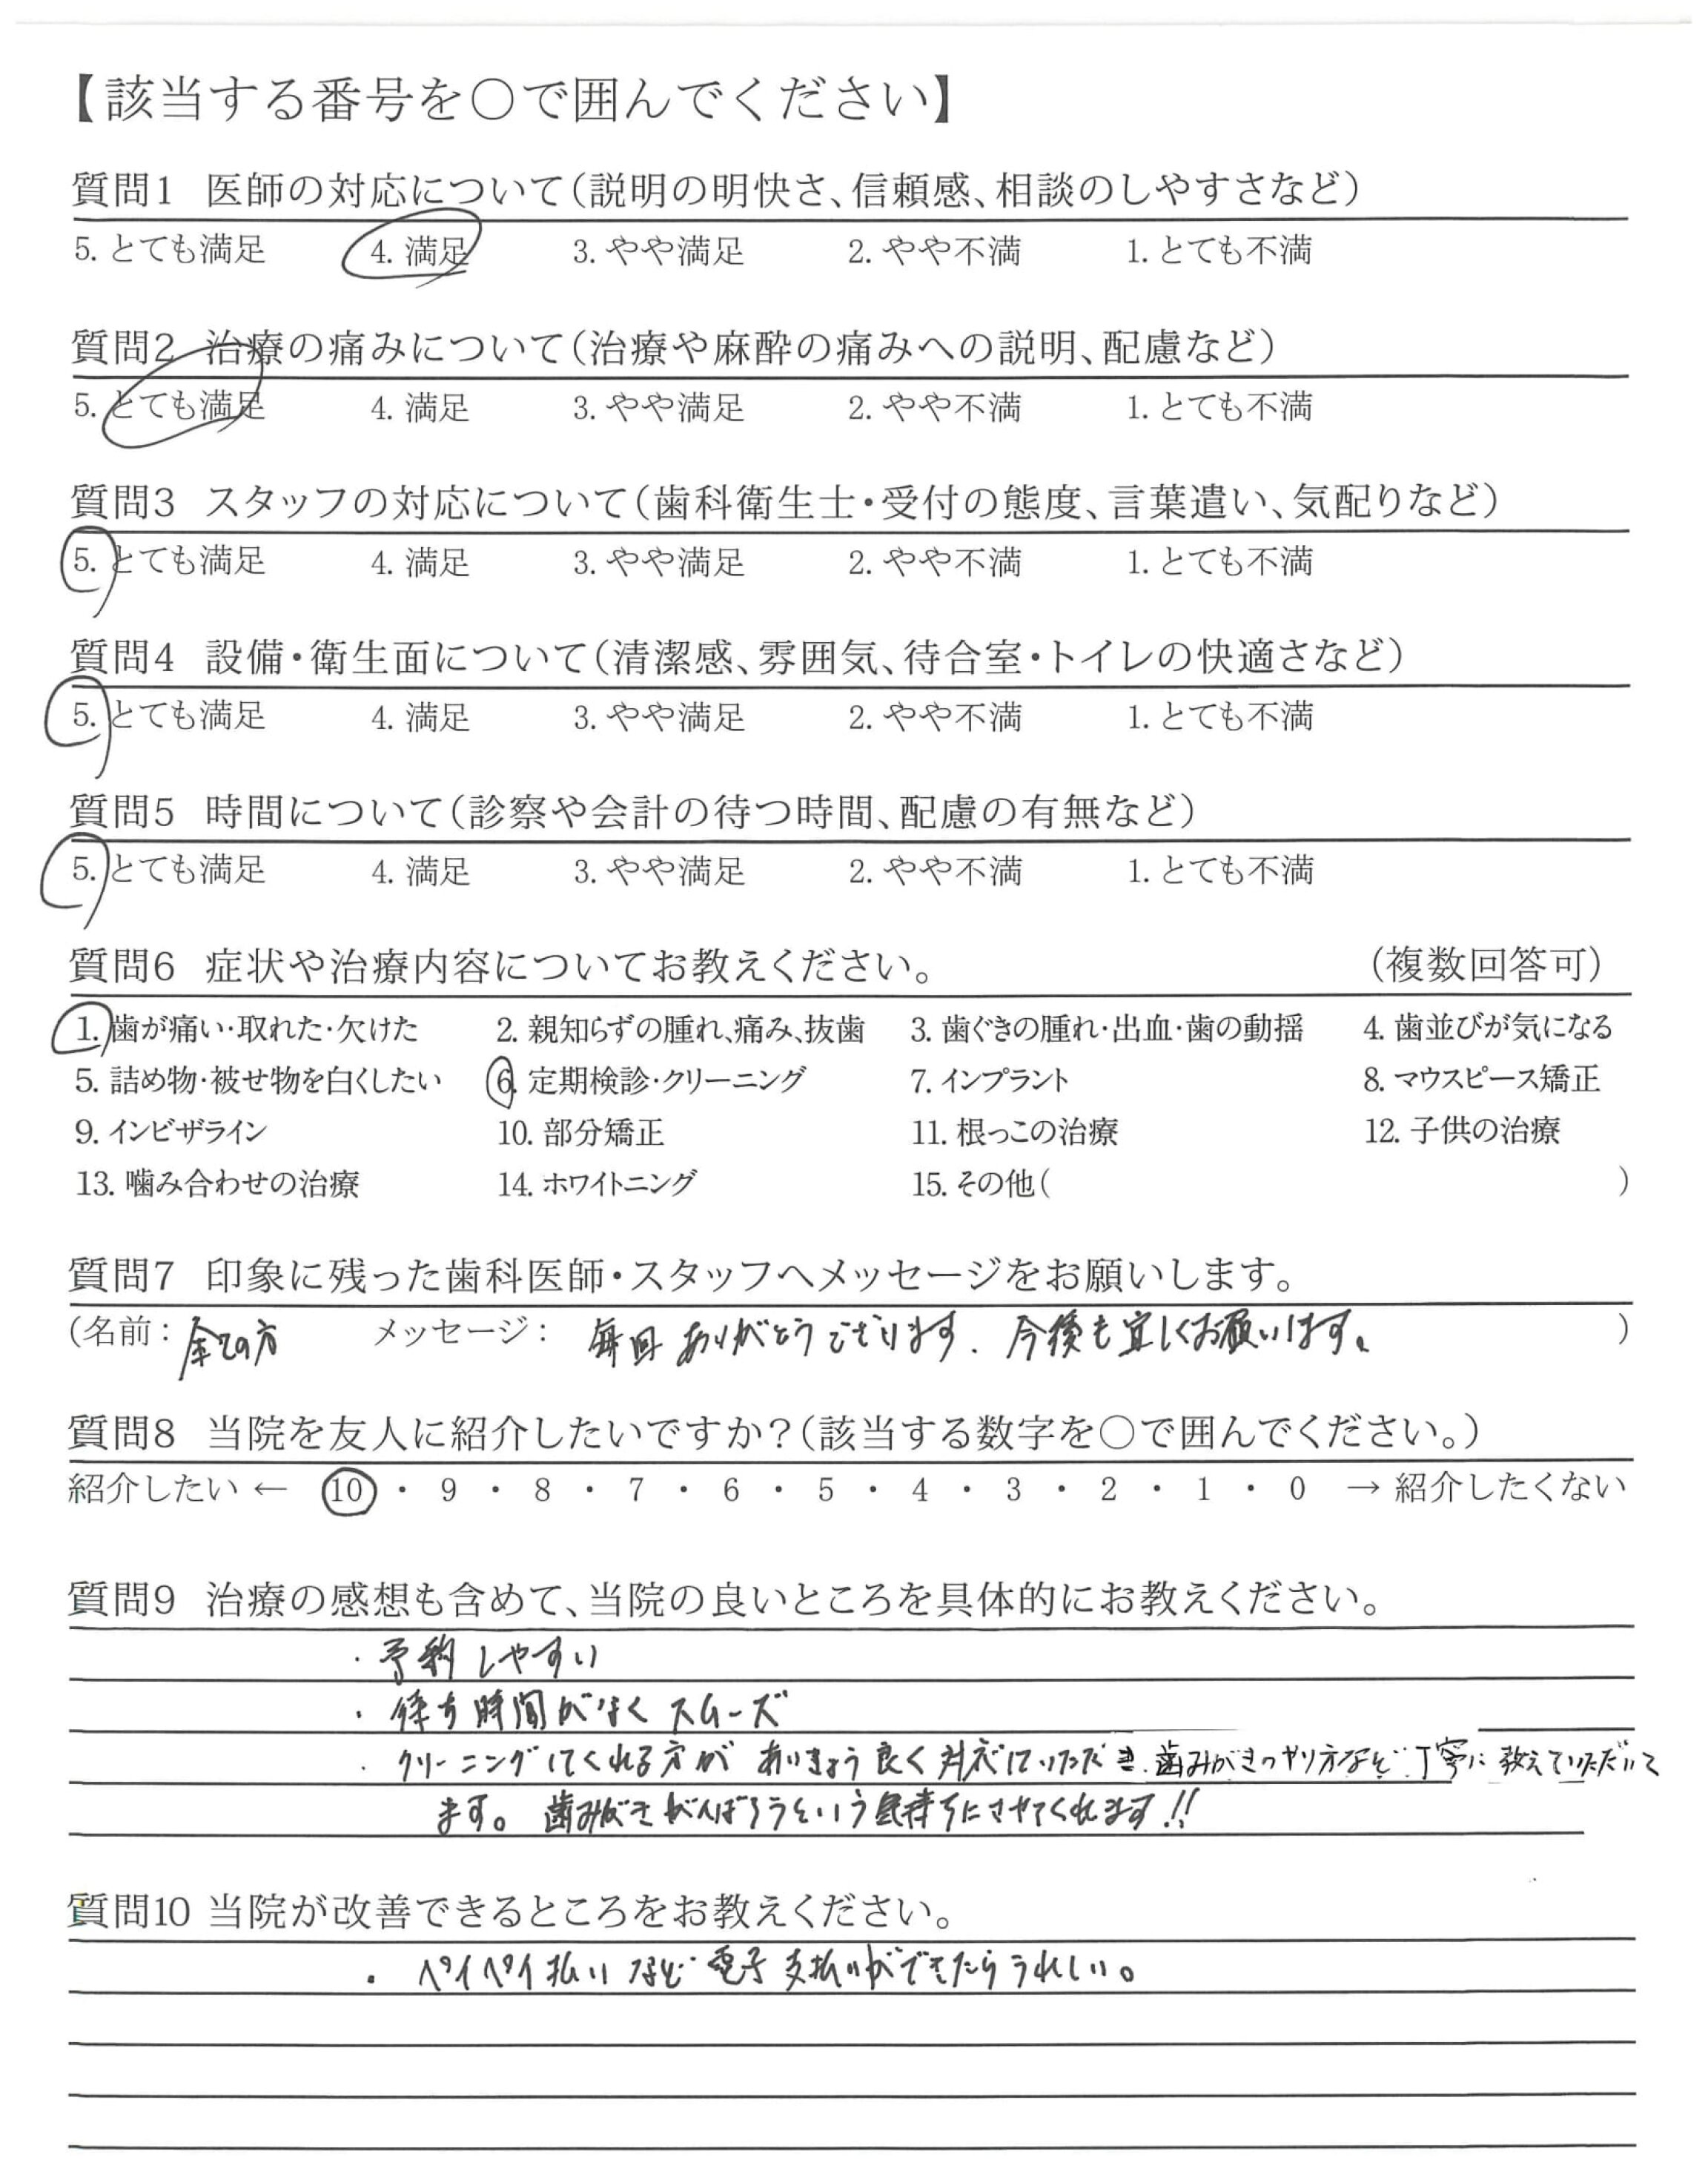 【該当する番号を○で囲んでください】
質問1 医師の対応について（説明の明快さ、信頼感、相談のしやすさなど）
5. とても満足 4. 満足 3. やや満足 2. やや不満 1. とても不満
質問2 治療の痛みについて（治療や麻酔の痛みへの説明、配慮など）
5. とても満足 4. 満足 3. やや満足 2. やや不満 1. とても不満
質問3 スタッフの対応について（歯科衛生士・受付の態度、言葉遣い、気配りなど）
5. とても満足 4. 満足 3. やや満足 2. やや不満 1. とても不満
質問4 設備・衛生面について（清潔感、雰囲気、待合室・トイレの快適さなど）
5. とても満足 4. 満足 3. やや満足 2. やや不満 1. とても不満
質問5 時間について（診察や会計の待つ時間、配慮の有無など）
5. とても満足 4. 満足 3. やや満足 2. やや不満 1. とても不満
質問6 症状や治療内容についてお教えください。 （複数回答可）
1. 歯が痛い・取れた・欠けた 2. 親知らずの腫れ、痛み、抜歯 3. 歯ぐきの腫れ・出血・歯の動揺 4. 歯並びが気になる
5. 詰め物・被せ物を白くしたい 6. 定期検診・クリーニング 7. インプラント 8. マウスピース矯正
9. インビザライン 10. 部分矯正 11. 根っこの治療 12. 子供の治療
13. 噛み合わせの治療 14. ホワイトニング 15. その他（ ）
質問7 印象に残った歯科医師・スタッフへメッセージをお願いします。
（名前：全ての方 メッセージ： 毎回ありがとうございます。今後も宜しくお願いします。 ）
質問8 当院を友人に紹介したいですか？（該当する数字を○で囲んでください。）
紹介したい ← 10 ・ 9 ・ 8 ・ 7 ・ 6 ・ 5 ・ 4 ・ 3 ・ 2 ・ 1 ・ 0 → 紹介したくない
質問9 治療の感想も含めて、当院の良いところを具体的にお教えください。
・予約しやすい
・待ち時間がなくスムーズ
・クリーニングしてくれる方があいきょう良く対応していただき、歯みがきのやり方など丁寧に教えていただいて
ます。歯みがきがんばろうという気持ちにさせてくれます!!
質問10 当院が改善できるところをお教えください。
・ペイペイ払いなど電子支払いができたらうれしい。